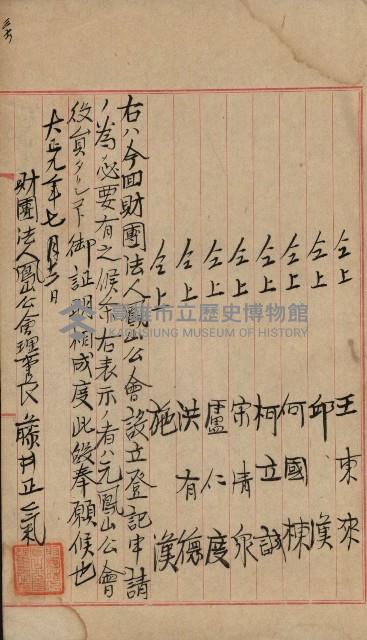 仝上 王東來
仝上 邱漢
仝上 何國棟
仝上 柯立誠
仝上 宋清泉
仝上 盧仁度
仝上 洪有德
仝上 施漢
右ハ今回財團法人鳳山公會設立登記申請
ノ為必要有之候条右表示ノ者ハ元鳳山公會
役員タリシ御証明相成度此段奉願候也
大正元年七月 日
財團法人鳳山公會理事長 藤井正氣
高雄市立歷史博物館
KAOHSIUNG MUSEUM OF HISTORY